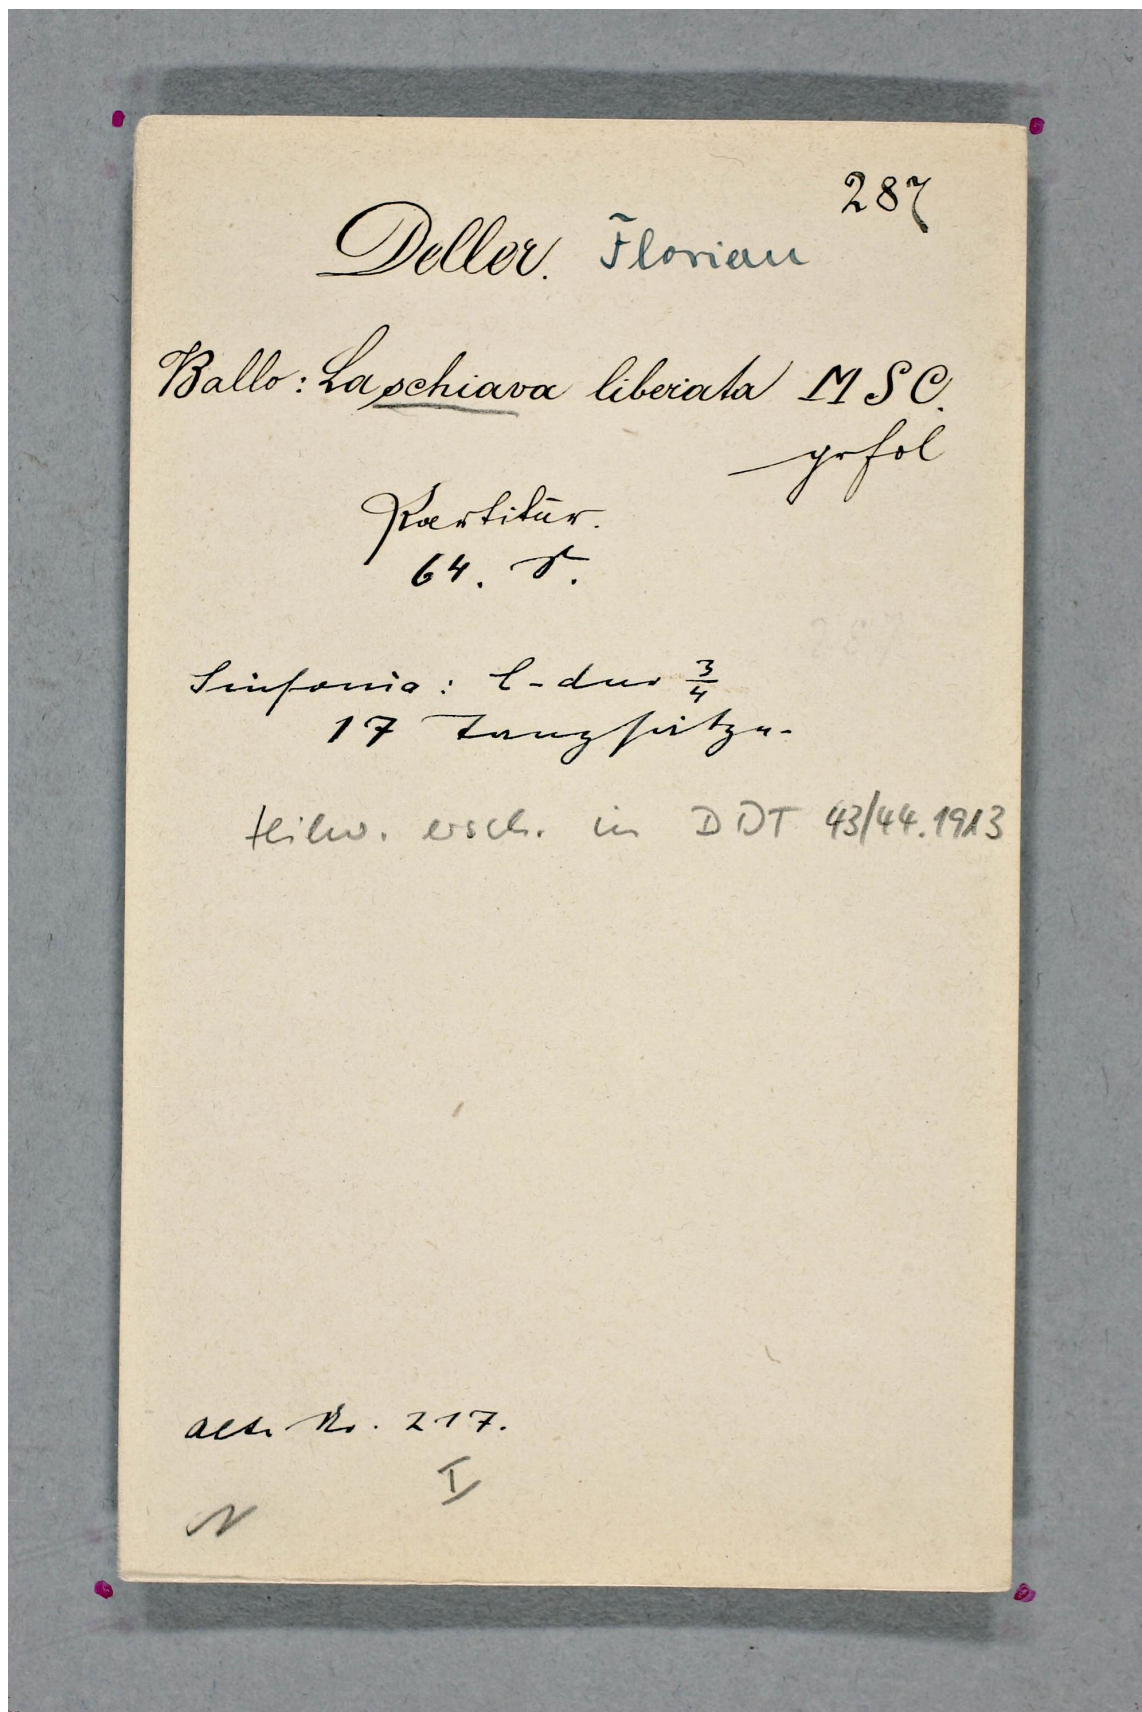 287
Deller. Florian
Ballo: La schiava liberata MSC.
gr fol
Partitur.
64. S.
Sinfonia: C-dur 3/4
17 Tanzsätze.
teilw. ersch. in DDT 43/44.1913
alte No. 217.
I
N